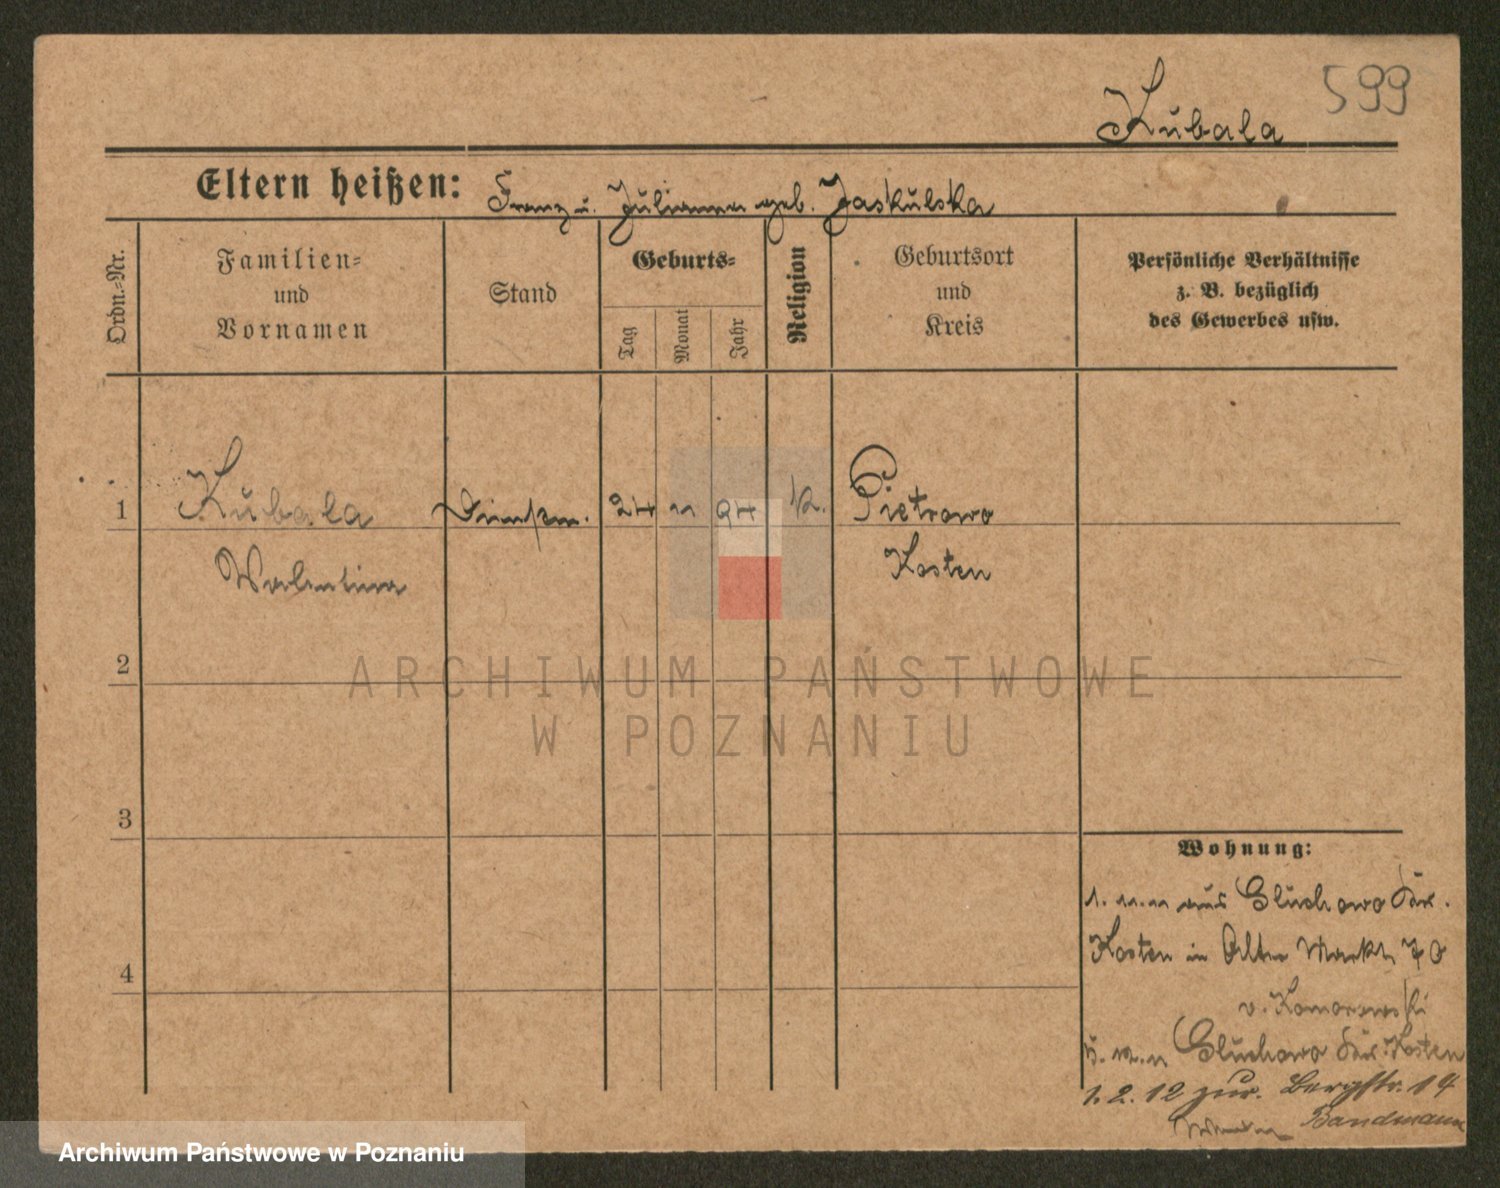 599
Kubala
Eltern heißen: Franz u. Julianna geb. Jaskulska
Ordn.-Nr.
Familien-
und
Vornamen
Stand
Geburts-
Tag
Monat
Jahr
Religion
Geburtsort
und
Kreis
Persönliche Verhältnisse
z. B. bezüglich
des Gewerbes usw.
1 Kubala 24 11 94 k. Pietrowo
Valentina Kosten
2
ARCHIWUM PAŃSTWOWE
W POZNANIU
3
Wohnung:
1. 11. 11 aus Gluchowo Kr.
Kosten in Alter Markt 70
4
v. Komorowski
12. 11 Gluchowo Kr. Kosten
1. 2. 12 zur. Bergstr. 14
Bandmann
Archiwum Państwowe w Poznaniu